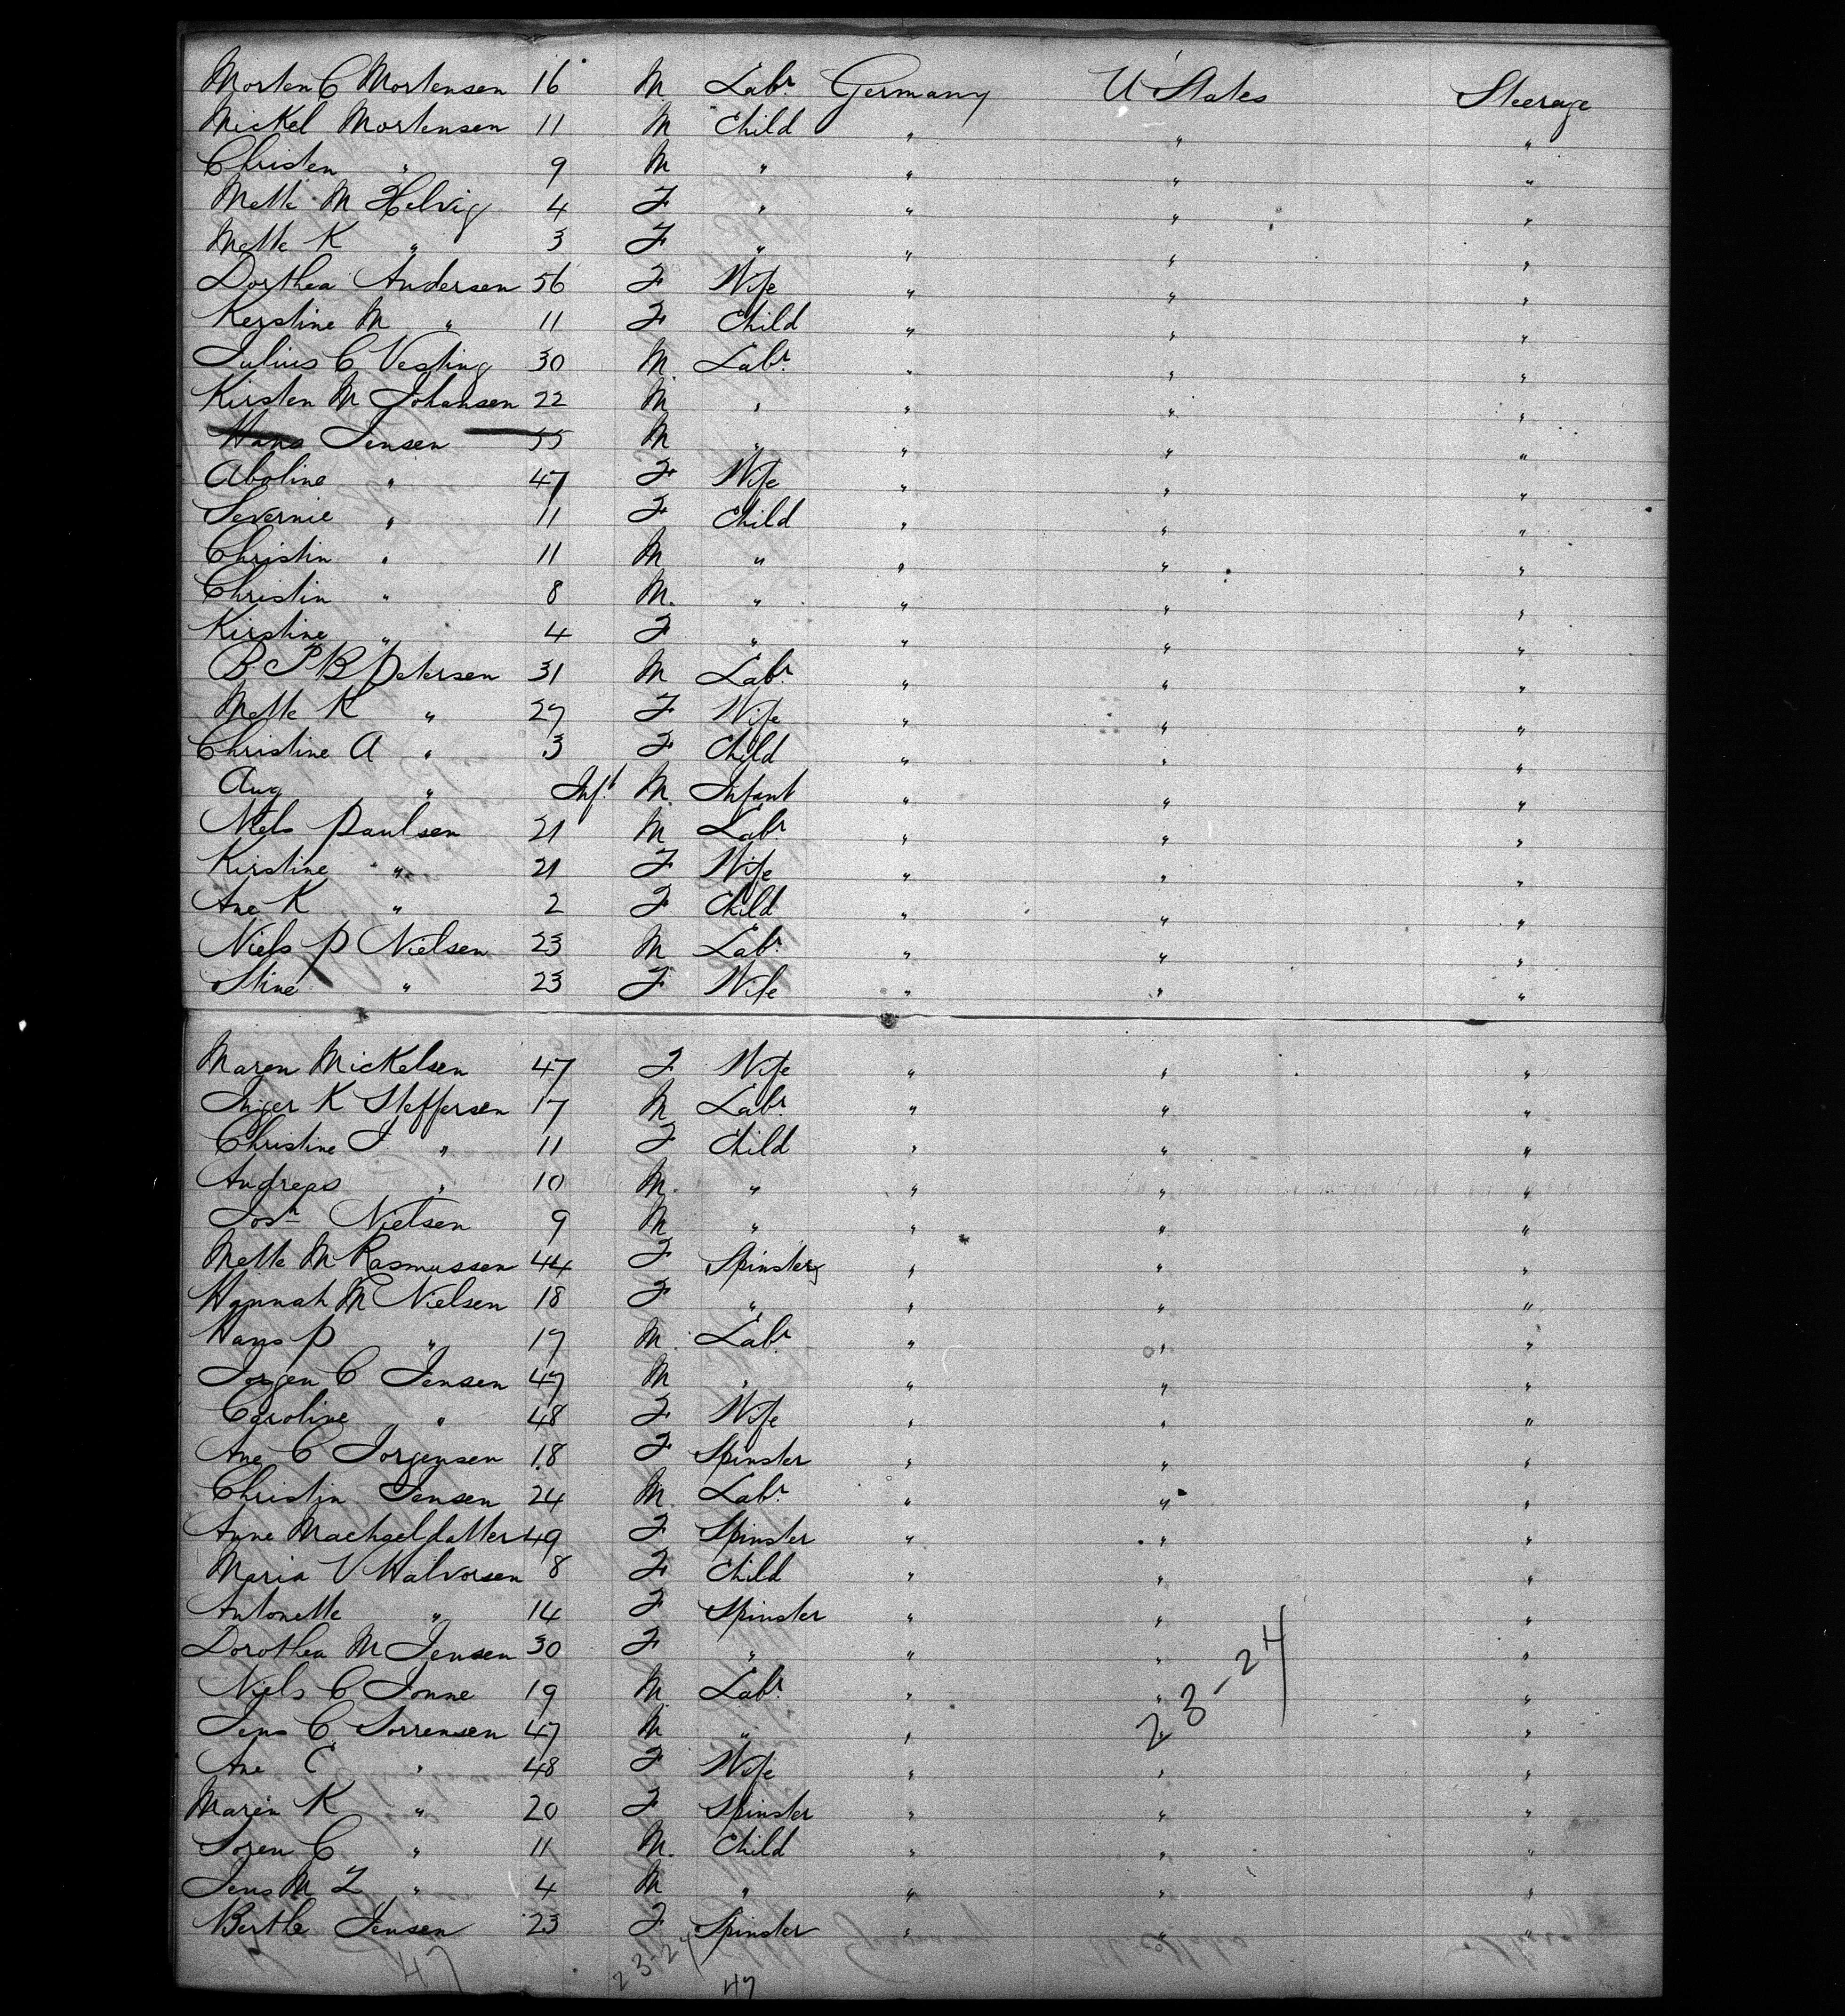 Morten C Mortensen 16 M Labr. Germany U States Steerage
Mickel Mortensen 11 M Child " " "
Christen " 9 M " " " "
Mette M Helvig 4 F " " " "
Mette K " 3 F " " " "
Dorthea Andersen 56 F Wife " " "
Kerstine M " 11 F Child " " "
Julius C Vesting 30 M. Labr. " " "
Kirsten M Johansen 22 M " " " "
Hans Jensen 55 M " " " "
Aboline " 47 F Wife " " "
Severnie " 11 F Child " " "
Christin " 11 M " " " "
Christin " 8 M. " " " "
Kirstine " 4 F " " " "
B. P B Petersen 31 M Labr. " " "
Mette K " 27 F Wife " " "
Christine A " 3 F Child " " "
Aug " Inft. M. Infant " " "
Niels Paulsen 21 M Labr. " " "
Kirstine " 21 F Wife " " "
Ane K " 2 F Child " " "
Niels P Nielsen 23 M Labr. " " "
Stine " 23 F Wife " " "
Maren Mickelsen 47 F Wife " " "
Inger K Steffersen 17 M Labr. " " "
Christine J " 11 F Child " " "
Andreas " 10 M. " " " "
Josh Nielsen 9 M " " " "
Mette M Rasmussen 44 F Spinster " " "
Hannah M Nielsen 18 F " " " "
Hans P " 17 M. Labr. " " "
Jorgen C Jensen 47 M " " " "
Caroline " 48 F Wife " " "
Ane C Jorgensen 18 F Spinster " " "
Christin Jensen 24 M. Labr. " " "
Anne Machaeldatter 49 F Spinster " " "
Maria V Halvorsen 8 F Child " " "
Antonette " 14 F Spinster " " "
Dorothea M Jensen 30 F " " " "
Niels C Jonne 19 M. Labr. " " "
Jens C Sorrensen 47 M " " " "
Ane C " 48 F Wife " " "
Maren K " 20 F Spinster " " "
Soren C " 11 M. Child " " "
Jens M L " 4 M " " " "
Berthe Jensen 23 F Spinster " " "
23-24
47 23-24 47